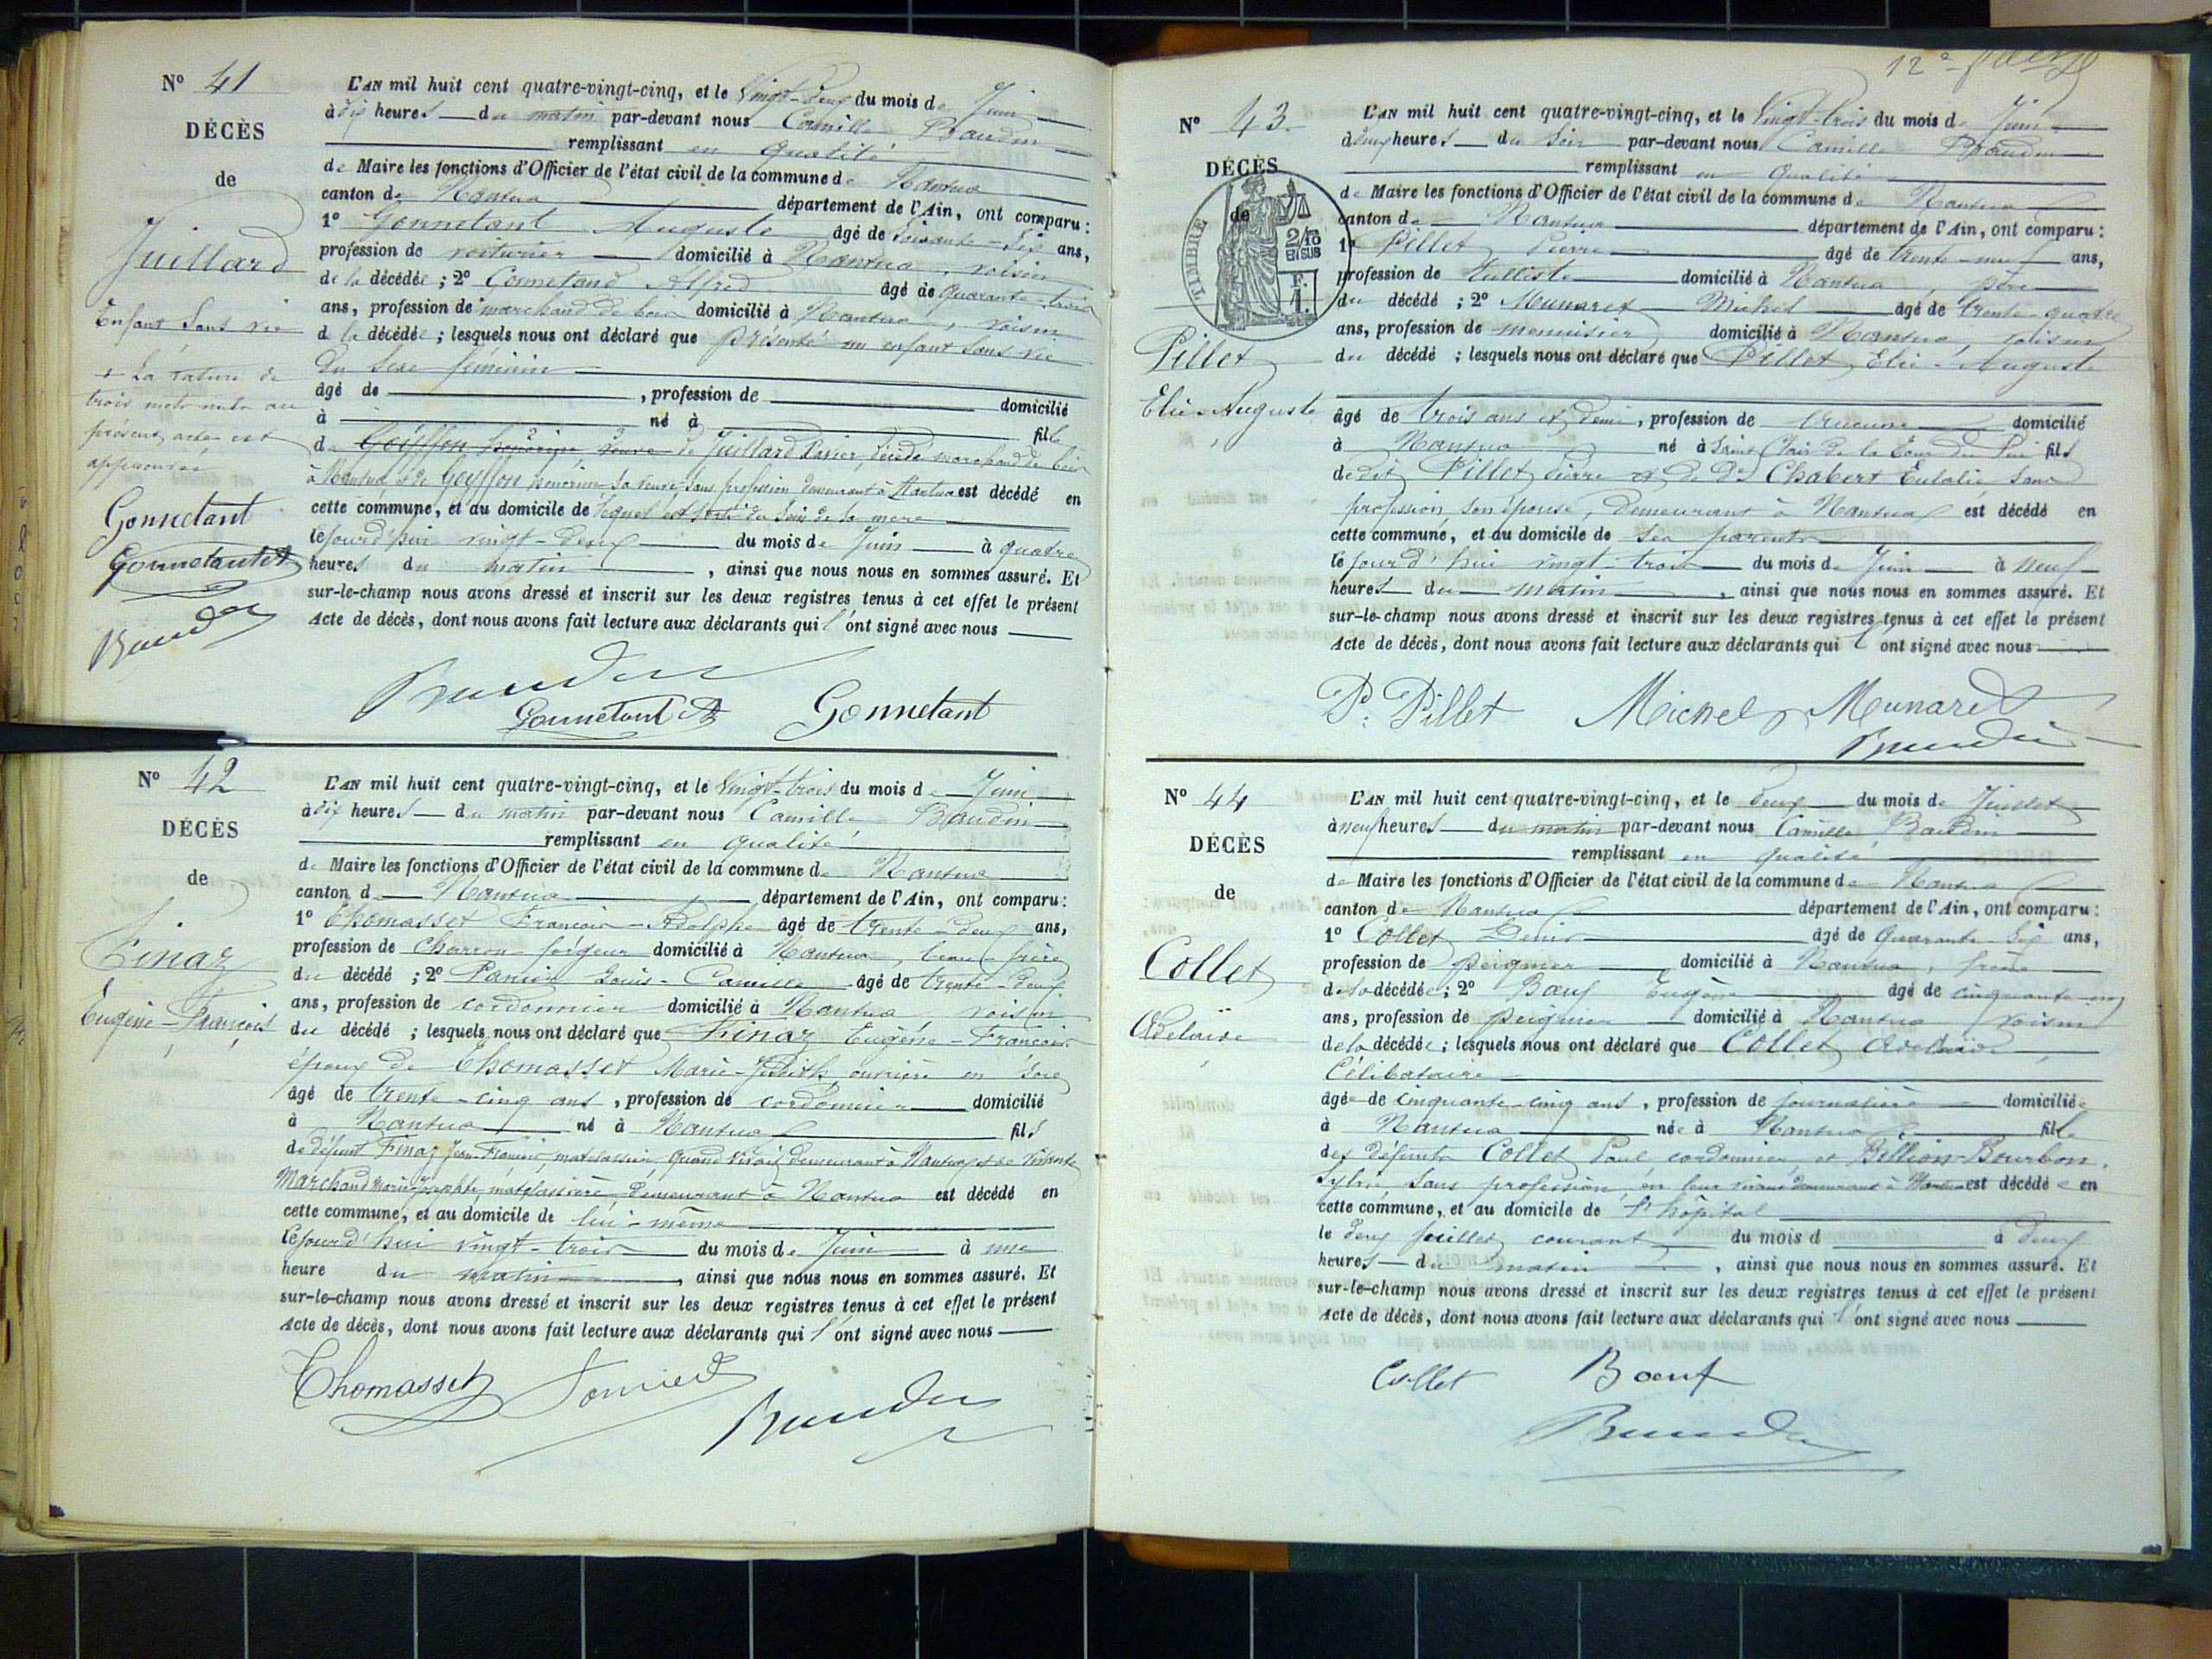 N° 41
DÉCÈS
de
Juillard
Enfant sans vie
+ La rature de
trois mots nuls au
présent acte est
approuvée
Gonnetant
Gonnetant A
Baudin
L'AN mil huit cent quatre-vingt-cinq, et le Vingt-deux du mois de Juin
à dix heures du matin par-devant nous Camille Baudin
remplissant en qualité
de Maire les fonctions d'Officier de l'état civil de la commune de Nantua
canton de Nantua département de l'Ain, ont comparu :
1° Gonnetant Auguste âgé de soixante-dix ans,
profession de voiturier domicilié à Nantua, voisin
de la décédée ; 2° Gonnetand Alfred âgé de quarante-trois
ans, profession de marchand de bois domicilié à Nantua, voisin
de la décédée ; lesquels nous ont déclaré que présenté un enfant sans vie
du sexe féminin
âgé de , profession de domicilié
à né à fille
de Goyffon veuve de Juillard décédé marchand de bois
à Nantua et de Goyffon sa veuve, sans profession demeurant à Nantua est décédé en
cette commune, et au domicile de lequel est sorti du sein de la mère
le jourd'hui vingt-deux du mois de Juin à quatre
heures du matin , ainsi que nous nous en sommes assuré. Et
sur-le-champ nous avons dressé et inscrit sur les deux registres tenus à cet effet le présent
Acte de décès, dont nous avons fait lecture aux déclarants qui l'ont signé avec nous
Baudin
Gonnetant A Gonnetant
N° 42
DÉCÈS
de
Finaz
Eugène-François
L'AN mil huit cent quatre-vingt-cinq, et le Vingt-trois du mois de Juin
à dix heures du matin par-devant nous Camille Baudin
remplissant en qualité
de Maire les fonctions d'Officier de l'état civil de la commune de Nantua
canton de Nantua département de l'Ain, ont comparu :
1° Thomasset François-Adolphe âgé de trente-deux ans,
profession de charron-forgeur domicilié à Nantua, beau-frère
du décédé ; 2° Louis-Camille âgé de trente-deux
ans, profession de cordonnier domicilié à Nantua voisin
du décédé ; lesquels nous ont déclaré que Finaz Eugène-François
époux de Thomasset Marie-Judith, ouvrière en soie
âgé de trente-cinq ans , profession de cordonnier domicilié
à Nantua né à Nantua fils
de défunt Finaz Jean-François, matelassier, quand vivait demeurant à Nantua et de vivante
Marchand Marie Josephte, matelassière demeurant à Nantua est décédé en
cette commune, et au domicile de lui-même
le jourd'hui vingt-trois du mois de Juin à une
heure du matin , ainsi que nous nous en sommes assuré. Et
sur-le-champ nous avons dressé et inscrit sur les deux registres tenus à cet effet le présent
Acte de décès, dont nous avons fait lecture aux déclarants qui l'ont signé avec nous
Thomasset
Baudin
12e
N° 43
DÉCÈS
de
TIMBRE
2/10
EN SUS
F.
1.
Pillet
Elie-Auguste
L'AN mil huit cent quatre-vingt-cinq, et le Vingt-trois du mois de Juin
à deux heures du soir par-devant nous Camille Baudin
remplissant en qualité
de Maire les fonctions d'Officier de l'état civil de la commune de Nantua
canton de Nantua département de l'Ain, ont comparu :
1° Pillet Pierre âgé de trente-neuf ans,
profession de tulliste domicilié à Nantua, père
du décédé ; 2° Munaret Michel âgé de trente-quatre
ans, profession de menuisier domicilié à Nantua, voisin
du décédé ; lesquels nous ont déclaré que Pillet, Elie-Auguste
âgé de trois ans et demi, profession de aucune domicilié
à Nantua né à Saint Clair de la Tour du Pin fils
de dit Pillet Pierre et de De Chabert Eulalie sans
profession, son épouse, demeurant à Nantua est décédé en
cette commune, et au domicile de ses parents
le jourd'hui vingt-trois du mois de Juin à neuf
heures du matin , ainsi que nous nous en sommes assuré. Et
sur-le-champ nous avons dressé et inscrit sur les deux registres tenus à cet effet le présent
Acte de décès, dont nous avons fait lecture aux déclarants qui l'ont signé avec nous
P. Pillet Michel Munaret
Baudin
N° 44
DÉCÈS
de
Collet
Adelaïde
L'AN mil huit cent quatre-vingt-cinq, et le deux du mois de Juillet
à neuf heures du matin par-devant nous Camille Baudin
remplissant en qualité
de Maire les fonctions d'Officier de l'état civil de la commune de Nantua
canton de Nantua département de l'Ain, ont comparu :
1° Collet Denis âgé de quarante-six ans,
profession de peignier domicilié à Nantua, frère
de la décédée ; 2° Bœuf Eugène âgé de cinquante-un
ans, profession de peignier domicilié à Nantua voisin
de la décédée ; lesquels nous ont déclaré que Collet Adelaïde
Célibataire
âgée de cinquante-cinq ans , profession de journalière domiciliée
à Nantua née à Nantua fille
des défunts Collet Paul cordonnier et Billion-Bourbon,
Sylvie sans profession, en leur vivant demeurant à Nantua est décédée en
cette commune, et au domicile de l'hôpital
le deux juillet courant du mois d à deux
heures du matin , ainsi que nous nous en sommes assuré. Et
sur-le-champ nous avons dressé et inscrit sur les deux registres tenus à cet effet le présent
Acte de décès, dont nous avons fait lecture aux déclarants qui l'ont signé avec nous
Collet Bœuf
Baudin